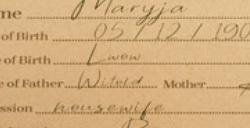 me Maryja
of Birth 05/12/190
of Birth Lwow
e of Father Witold Mother
ssion housewife